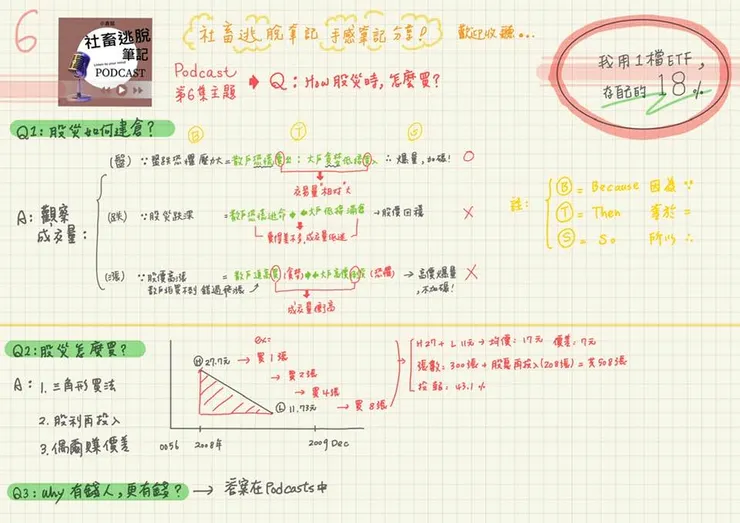 6
小畫報
社畜逃脫
筆記
Listen to your mind
PODCAST
社畜逃脫筆記 手感筆記分享! 歡迎收聽...
Podcast
第6集主題
Q: How股災時,怎麼買?
我用1檔ETF,
存自己的18%
Q1: 股災如何建倉?
Ⓑ Ⓣ Ⓢ
A: 觀察
成交量:
(盤) ∵盤跌恐懼壓力大=散戶恐懼賣出: 大戶貪婪低檔買入 ∴爆量,加碼! O
交易量"相對"大
(跌) ∵股災跌深 =散戶恐慌逃命 大戶低檔滿倉 →股價回穩 X
買價差不多,成交量低迷
(漲) ∵股價高漲 =散戶追高買(貪婪) 大戶高價(恐懼) →高價爆量, X
散戶怕買不到 錯過飛漲 不加碼!
成交量衝高
註:
Ⓑ = Because 因為 ∵
Ⓣ = Then 等於 =
Ⓢ = So 所以 ∴
Q2: 股災怎麼買?
A: 1. 三角形買法
2. 股利再投入
3. 偶爾賺價差
ex:
Ⓗ 27.7元 → 買1張
→ 買2張
→ 買4張
Ⓛ 11.73元 → 買8張
0056 2008年 2009 Dec
H27+L11元→均價:17元 價差:7元
張數:300張+股息再投入(208張)=共508張
投報:43.1%
Q3: why 有錢人,更有錢? → 答案在Podcasts中